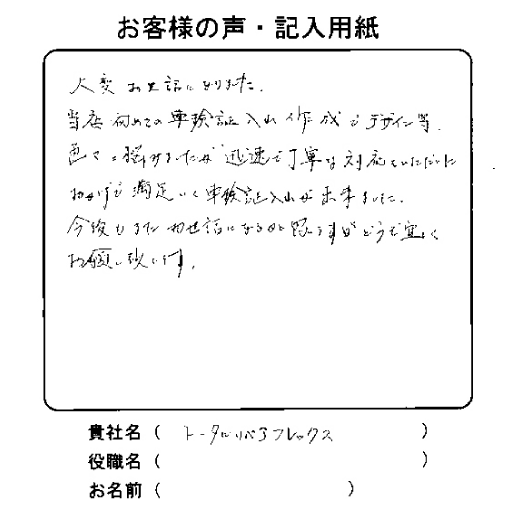 お客様の声・記入用紙
大変お世話になりました。
当店初めての車検証入れ作成でデザイン等、
色々と悩みましたが迅速で丁寧な対応をいただいた
おかげで満足いく車検証入れが出来ました。
今後もまたお世話になるかと思うますがどうぞ宜しく
お願い致します。
貴社名（トータルリペアフレックス）
役職名（　　）
お名前（　　）